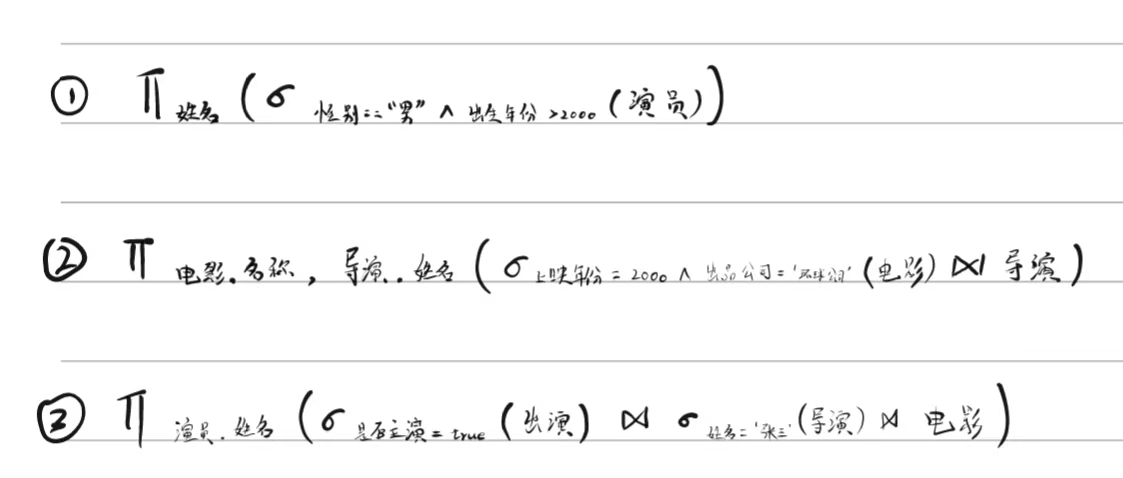 ① π 姓名 (σ 性别=="男" ∧ 出生年份>2000 (演员))
② π 电影.名称, 导演.姓名 (σ 上映年份=2000 ∧ 出品公司='环球公司' (电影) ⋈ 导演)
③ π 演员.姓名 (σ 是否主演=true (出演) ⋈ σ 姓名='张三' (导演) ⋈ 电影)